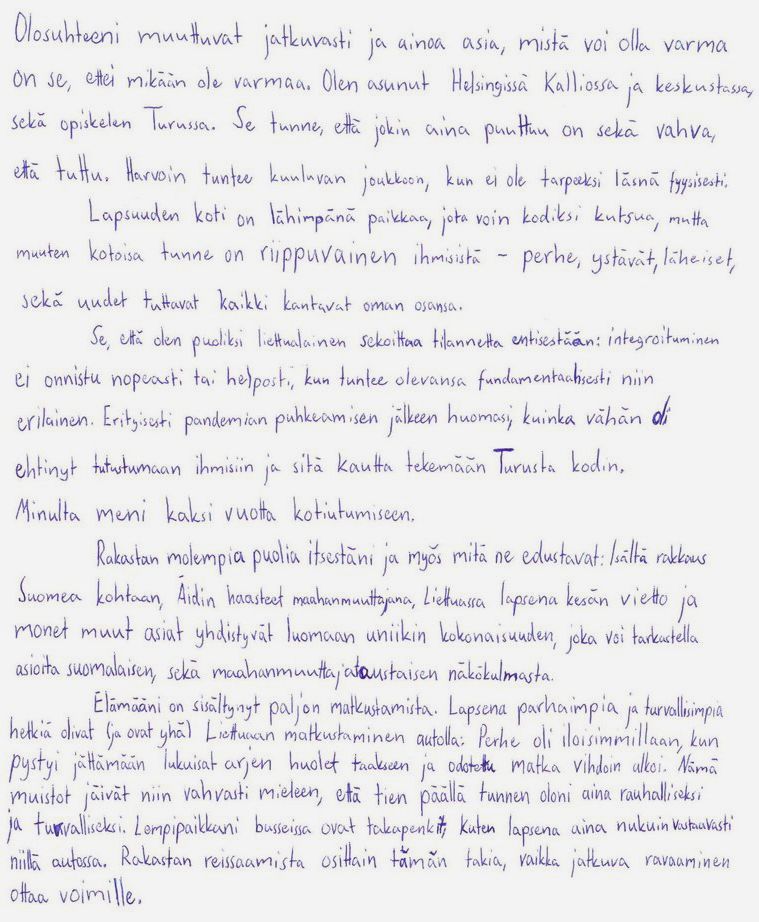 Olosuhteeni muuttuvat jatkuvasti ja ainoa asia, mistä voi olla varma
on se, ettei mikään ole varmaa. Olen asunut Helsingissä Kalliossa ja keskustassa,
sekä opiskelen Turussa. Se tunne, että jokin aina puuttuu on sekä vahva,
että tuttu. Harvoin tuntee kuuluvan joukkoon, kun ei ole tarpeeksi läsnä fyysisesti.
Lapsuuden koti on lähimpänä paikkaa, jota voin kodiksi kutsua, mutta
muuten kotoisa tunne on riippuvainen ihmisistä – perhe, ystävät, läheiset,
sekä uudet tuttavat kaikki kantavat oman osansa.
Se, että olen puoliksi liettualainen sekoittaa tilannetta entisestään: integroituminen
ei onnistu nopeasti tai helposti, kun tuntee olevansa fundamentaalisesti niin
erilainen. Erityisesti pandemian puhkeamisen jälkeen huomasi, kuinka vähän oli
ehtinyt tutustumaan ihmisiin ja sitä kautta tekemään Turusta kodin.
Minulta meni kaksi vuotta kotiutumiseen.
Rakastan molempia puolia itsestäni ja myös mitä ne edustavat: Isältä rakkaus
Suomea kohtaan, Äidin haasteet maahanmuuttajana, Liettuassa lapsena kesän vietto ja
monet muut asiat yhdistyvät luomaan uniikin kokonaisuuden, joka voi tarkastella
asioita suomalaisen, sekä maahanmuuttajataustaisen näkökulmasta.
Elämääni on sisältynyt paljon matkustamista. Lapsena parhaimpia ja turvallisimpia
hetkiä olivat (ja ovat yhä) Liettuaan matkustaminen autolla: Perhe oli iloisimmillaan, kun
pystyi jättämään lukuisat arjen huolet taakseen ja odotettu matka vihdoin alkoi. Nämä
muistot jäivät niin vahvasti mieleen, että tien päällä tunnen oloni aina rauhalliseksi
ja turvalliseksi. Lempipaikkani busseissa ovat takapenkit, kuten lapsena aina nukuin vastaavasti
niillä autossa. Rakastan reissaamista osittain tämän takia, vaikka jatkuva ravaaminen
ottaa voimille.